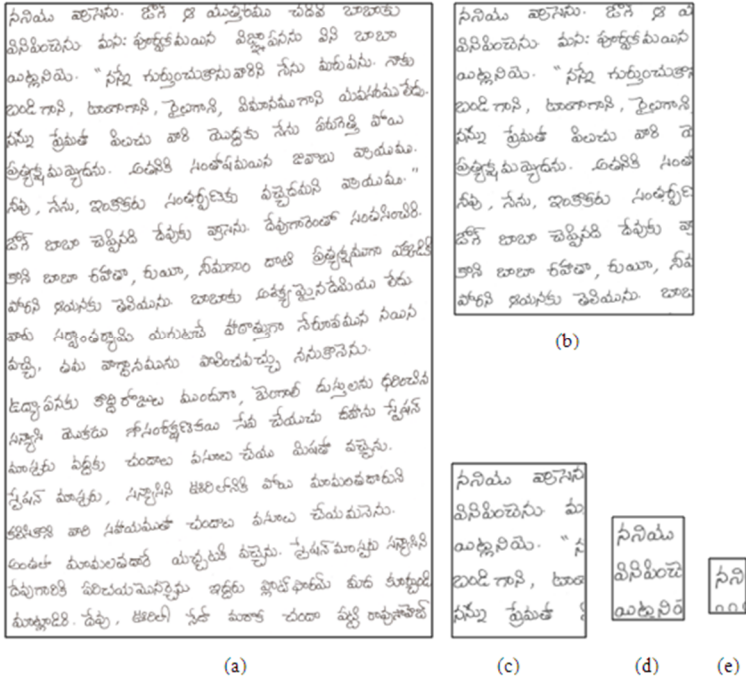 ననియు వ్రాసెను. జోగ్ ఆ యుత్తరము చదివి బాబాకు
వినిపించెను. మనః పూర్వకమయిన విజ్ఞాపనను విని బాబా
యిట్లనియె. "నన్నే గుర్తుంచుకొనువారిని నేను మరువను. నాకు
బండి గాని, టాంగాగాని, రైలుగాని, విమానముగాని యవసరము లేదు.
నన్ను ప్రేమతో పిలుచు వారి యొద్దకు నేను పరుగెత్తి పోయి
ప్రత్యక్షమయ్యెదను. అతనికి సంతోషమయిన జవాబు వ్రాయుము.
నీవు, నేను, ఇంకొకరు సంతర్పణకు వచ్చెదమని వ్రాయుము."
జోగ్ బాబా చెప్పినది దేవుకు వ్రాసెను. దేవుగారెంతో సంతసించిరి.
కాని బాబా రహాతా, రుయీ, నీమగాం దాటి ప్రత్యక్షముగా
పోరని ఆయనకు తెలియును. బాబాకు అశక్యమైనదేమియు లేదు
వారు సర్వాంతర్యామి యగుటచే హఠాత్తుగా నేరూపమున నయిన
వచ్చి, తమ వాగ్దానమును పాలించవచ్చు ననుకొనెను.
ఉద్యాపనకు కొద్ది రోజులు ముందుగా, బెంగాలీ దుస్తులను ధరించిన
సన్యాసి యొకడు గోసంరక్షణకయి సేవ చేయుచు దహాను స్టేషన్
మాస్టరు వద్దకు చందాలు వసూలు చేయు మిషతో వచ్చెను.
స్టేషన్ మాస్టరు, సన్యాసిని ఊరిలోనికి పోయి మామలతదారుని
కలిసికొని వారి సహాయముతో చందాలు వసూలు చేయుమనెను.
అంతలో మామలతదారే యచ్చటకి వచ్చెను. స్టేషన్ మాస్టరు సన్యాసిని
దేవుగారికి పరిచయమొనర్చెను ఇద్దరు ప్లాట్ ఫారమ్ మీద కూర్చుండి
మాట్లాడిరి. దేవు, ఊరిలో నేదో మరొక చందా పట్టి
(a)
ననియు వ్రాసెను. జోగ్ ఆ
వినిపించెను. మనః పూర్వకమయిన
యిట్లనియె. "నన్నే గుర్తుంచుకొను
బండి గాని, టాంగాగాని, రైలుగాని,
నన్ను ప్రేమతో పిలుచు వారి
ప్రత్యక్షమయ్యెదను. అతనికి
నీవు, నేను, ఇంకొకరు
జోగ్ బాబా చెప్పినది దేవుకు
కాని బాబా రహాతా, రుయీ,
పోరని ఆయనకు తెలియును.
(b)
ననియు వ్రాసెను
వినిపించెను.
యిట్లనియె. "
బండి గాని,
నన్ను ప్రేమతో
(c)
ననియు
వినిపించె
యిట్లని
(d)
నని
(e)